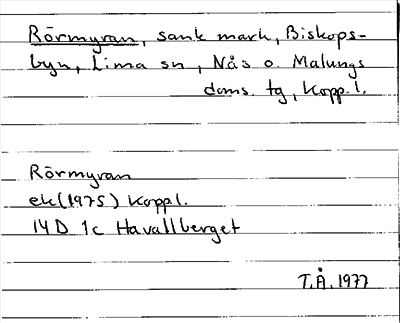 Rörmyran, sank mark, Biskops-
byn, Lima sn, Nås o. Malungs
doms. tg, Kopp.l.
Rörmyran
ek(1975) Koppl.
14D 1c Havallberget
T.Å. 1977